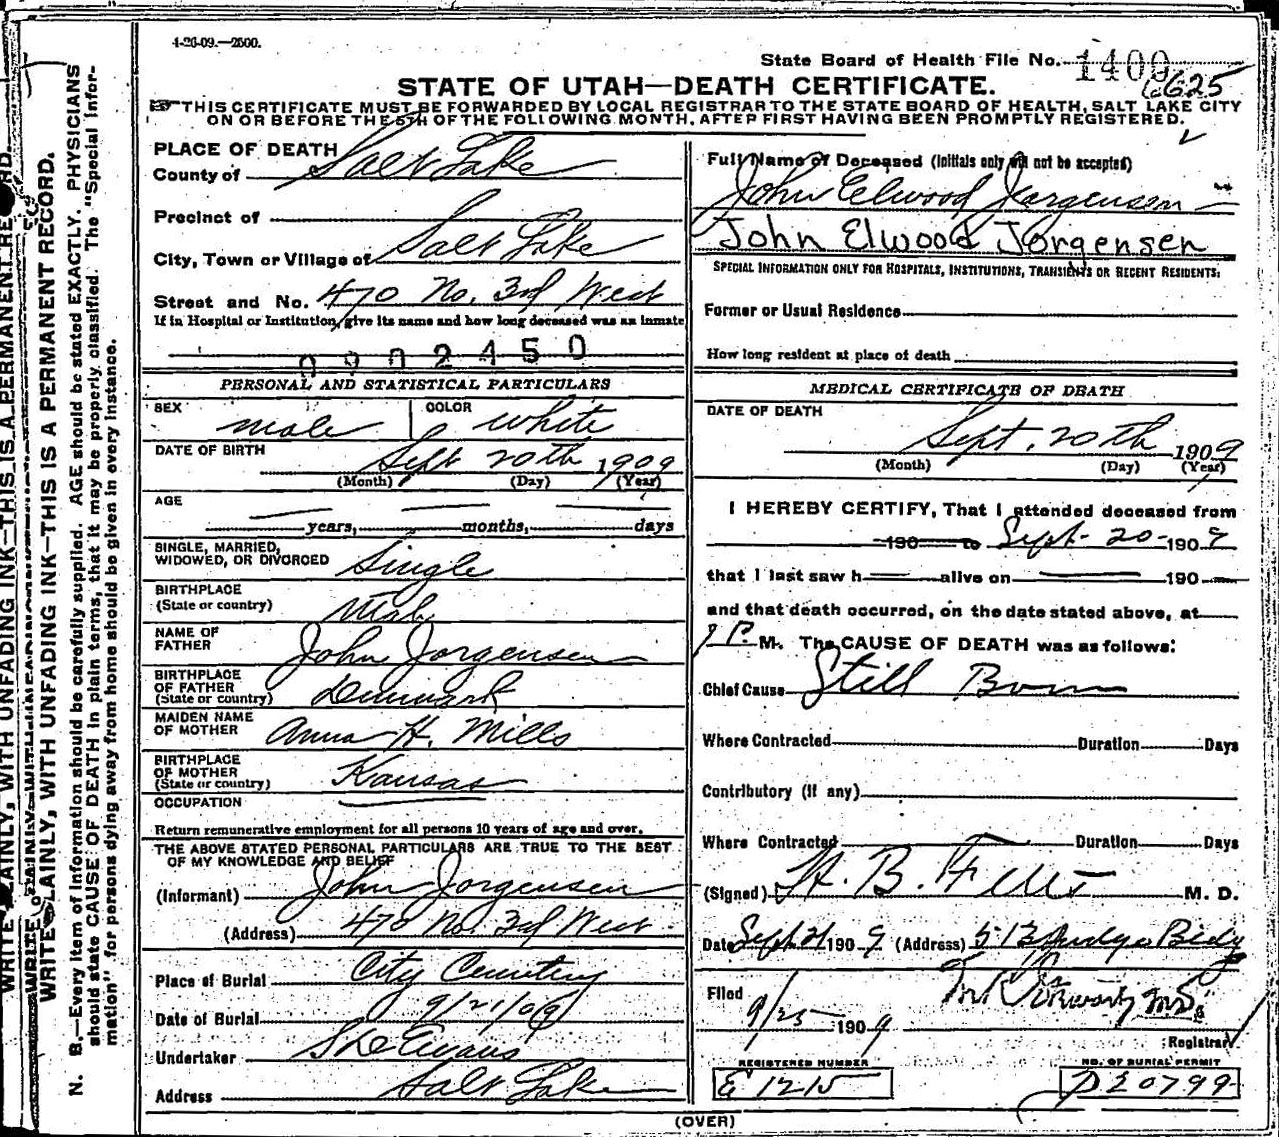 4-26-09.—2500.
State Board of Health File No. 1400
625
STATE OF UTAH—DEATH CERTIFICATE.
THIS CERTIFICATE MUST BE FORWARDED BY LOCAL REGISTRAR TO THE STATE BOARD OF HEALTH, SALT LAKE CITY
ON OR BEFORE THE 5TH OF THE FOLLOWING MONTH, AFTER FIRST HAVING BEEN PROMPTLY REGISTERED.
PLACE OF DEATH
County of Salt Lake
Precinct of
City, Town or Village of Salt Lake
Street and No. 470 No. 3rd West
If in Hospital or Institution, give its name and how long deceased was an inmate
0902450
PERSONAL AND STATISTICAL PARTICULARS
SEX male COLOR white
DATE OF BIRTH Sept 20th 1909
(Month) (Day) (Year)
AGE
years, months, days
SINGLE, MARRIED,
WIDOWED, OR DIVORCED Single
BIRTHPLACE
(State or country) Utah
NAME OF
FATHER John Jorgensen
BIRTHPLACE
OF FATHER
(State or country) Denmark
MAIDEN NAME
OF MOTHER Anna H. Mills
BIRTHPLACE
OF MOTHER
(State or country) Kansas
OCCUPATION
Return remunerative employment for all persons 10 years of age and over.
THE ABOVE STATED PERSONAL PARTICULARS ARE TRUE TO THE BEST
OF MY KNOWLEDGE AND BELIEF
(Informant) John Jorgensen
(Address) 470 No. 3rd West
Place of Burial City Cemetery
Date of Burial 9/21/09
Undertaker Evans
Address Salt Lake
Full Name of Deceased (Initials only will not be accepted)
John Elwood Jorgensen
John Elwood Jorgensen
SPECIAL INFORMATION ONLY FOR HOSPITALS, INSTITUTIONS, TRANSIENTS OR RECENT RESIDENTS:
Former or Usual Residence
How long resident at place of death
MEDICAL CERTIFICATE OF DEATH
DATE OF DEATH
Sept. 20th 1909
(Month) (Day) (Year)
I HEREBY CERTIFY, That I attended deceased from
190 to Sept. 20 1909
that I last saw h alive on 190
and that death occurred, on the date stated above, at
P. M. The CAUSE OF DEATH was as follows:
Chief Cause Still Born
Where Contracted Duration Days
Contributory (if any)
Where Contracted Duration Days
(Signed) H. B. M. D.
Date Sept 21 1909 (Address) 513 Judge Bldg
Filed
9/25 1909
Registrar
REGISTERED NUMBER
E 1215
NO. OF BURIAL PERMIT
D 20799
(OVER)
WRITE PLAINLY, WITH UNFADING INK—THIS IS A PERMANENT RECORD.
N. B.—Every item of information should be carefully supplied. AGE should be stated EXACTLY. PHYSICIANS
should state CAUSE OF DEATH in plain terms, that it may be properly classified. The "Special Infor-
mation" for persons dying away from home should be given in every instance.